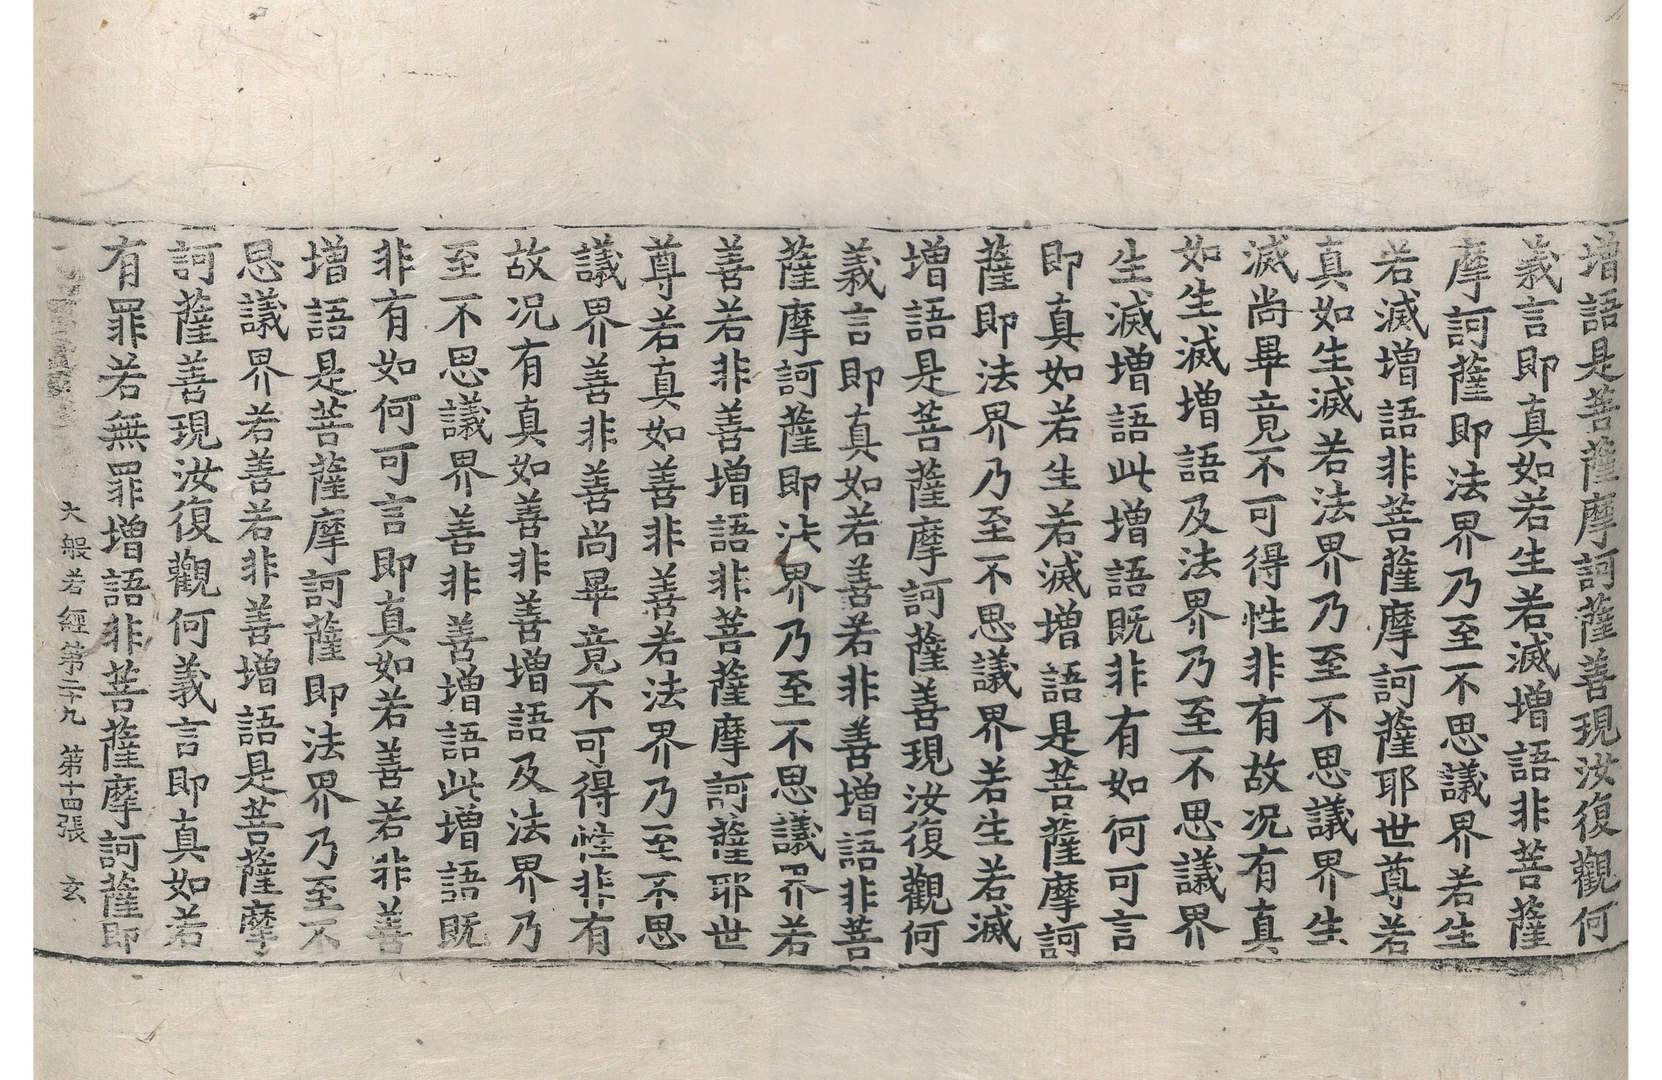 增語是菩薩摩訶薩善現汝復觀何
義言即真如若生若滅增語非菩薩
摩訶薩即法界乃至不思議界若生
若滅增語非菩薩摩訶薩耶世尊若
真如生滅若法界乃至不思議界生
滅尚畢竟不可得性非有故况有真
如生滅增語及法界乃至不思議界
生滅增語此增語既非有如何可言
即真如若生若滅增語是菩薩摩訶
薩即法界乃至不思議界若生若滅
增語是菩薩摩訶薩善現汝復觀何
義言即真如若善若非善增語非菩
薩摩訶薩即法界乃至不思議界若
善若非善增語非菩薩摩訶薩耶世
尊若真如善非善若法界乃至不思
議界善非善尚畢竟不可得性非有
故况有真如善非善增語及法界乃
至不思議界善非善增語此增語既
非有如何可言即真如若善若非善
增語是菩薩摩訶薩即法界乃至不
思議界若善若非善增語是菩薩摩
訶薩善現汝復觀何義言即真如若
有罪若無罪增語非菩薩摩訶薩即
大般若經第二十九 第十四張 玄